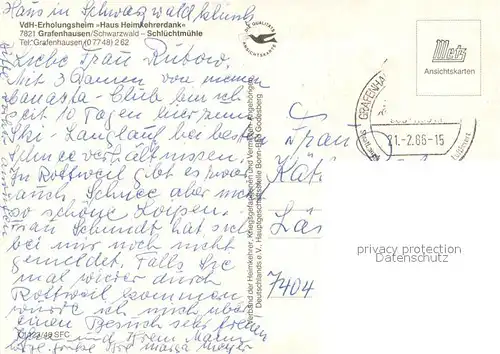 Haus in Schwarzwald
VdH-Erholungsheim »Haus Heimkehrerdank«
7821 Grafenhausen/Schwarzwald – Schlüchtmühle
Tel: Grafenhausen (0 77 48) 2 62
Liebe Frau Rubow.
Mit 3 Damen von meinem
Canasta-Club bin ich
seit 10 Tagen hier zum
Ski-Langlauf bei besten
Schneeverhältnissen.
In Rottweil gibt es zwar
auch Schnee aber nicht
so schöne Loipen.
Frau Schmidt hat sich
bei mir noch nicht
gemeldet. Falls Sie
mal wieder durch
Rottweil kommen
würde ich mich über
einen Besuch sehr freuen
und Ihrem Mann
Grüße Ihre
C 123/49 SFC
DIE QUALITÄTS
ANSICHTSKARTE
Verband der Heimkehrer, Kriegsgefangenen und Vermißten-Angehörigen
Deutschlands e.V., Hauptgeschäftsstelle Bonn-Bad Godesberg
Metz
Ansichtskarten
GRAFENHA
21.-2.86-15
Luftkurort
Frau
Kät
7404
privacy protection
Datenschutz
www.ansichtskarten-center.de